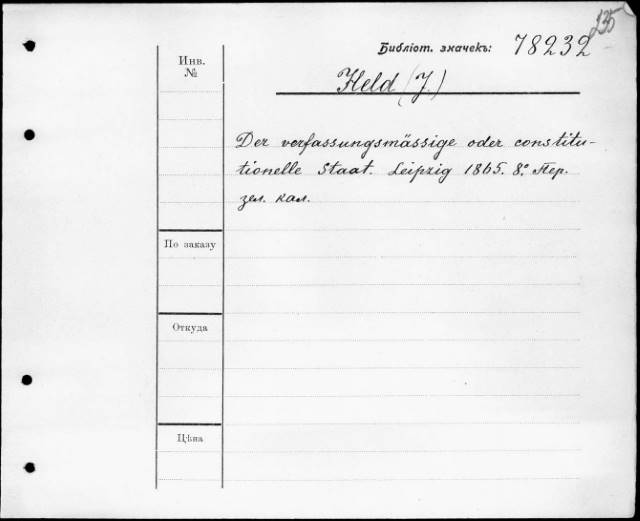 235
Библіот. значекъ: 78232
Инв.
№
Held (J.)
Der verfassungsmässige oder constitu-
tionelle Staat. Leipzig 1865. 8.° Пер.
зел. кал.
По заказу
Откуда
Цѣна